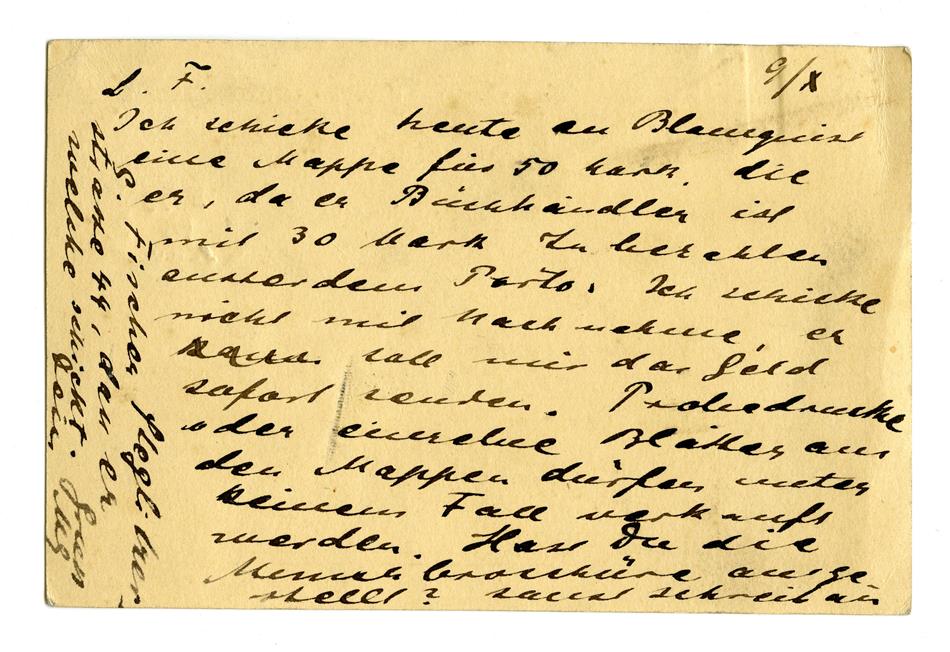 9/X
L. F.
Ich schicke heute an Blomquist
eine Mappe für 50 Mark, die
er, da er Buchhändler ist
mit 30 Mark zu bezahlen
ausserdem Porto. Ich schicke
nicht mit Nachnahme, er
soll mir das Geld
sofort senden. Probedrucke
oder einzelne Blätter aus
den Mappen dürfen unter
keinem Fall verkauft
werden. Hast Du die
Munch broschüre ausge
stellt? sonst schreib an
S. Fischer Steglitzer
strasse 49, dan er
welche schickt. Gruss
Dein